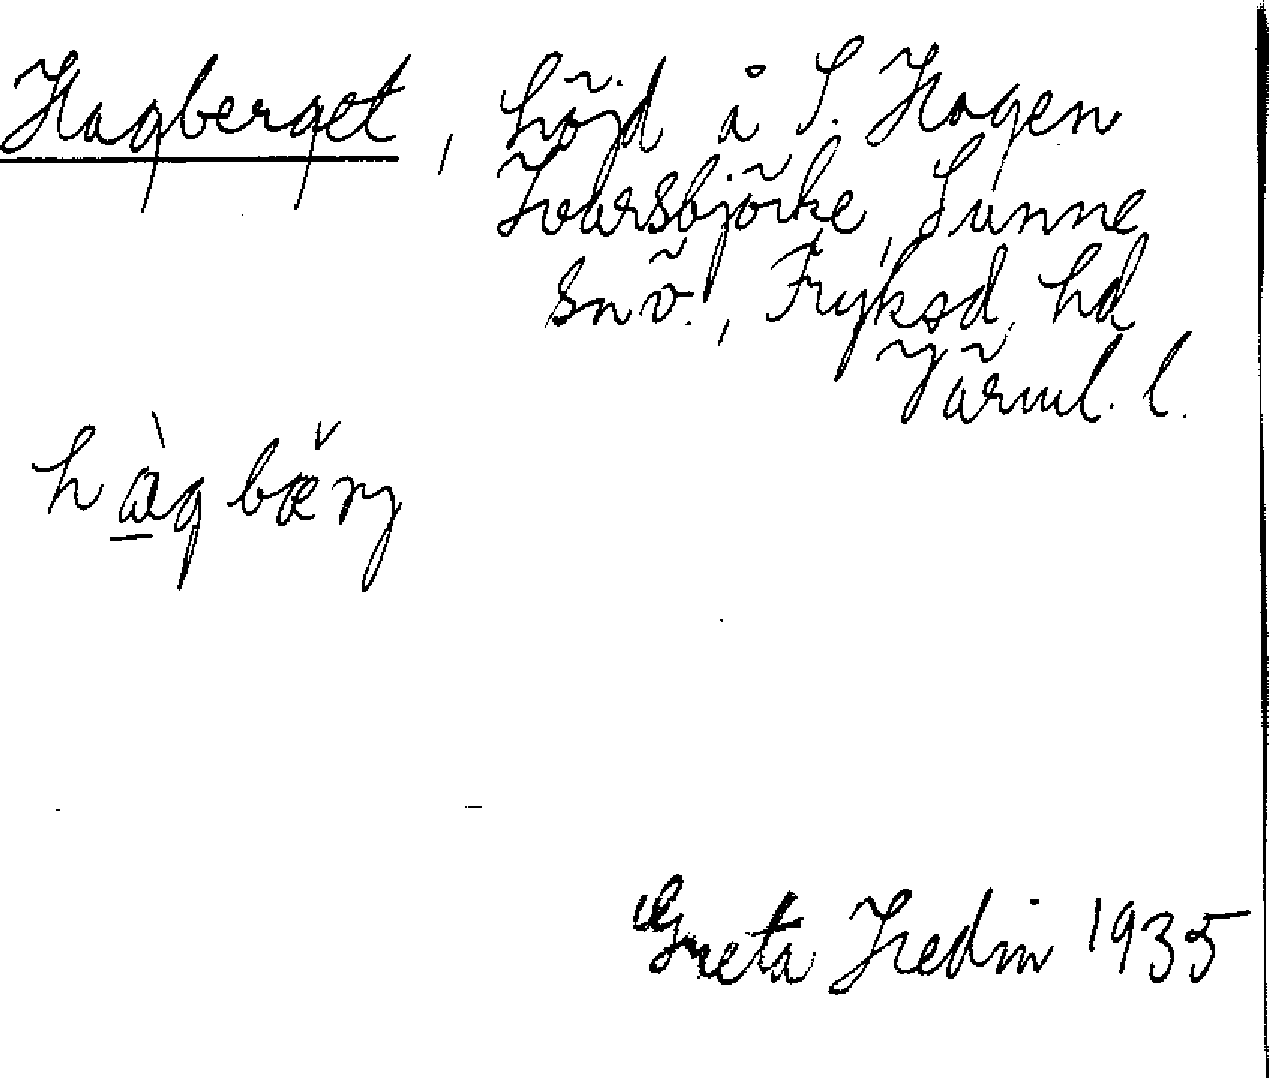 Hagberget, höjd å S. Hagen
Ivarsbjörke, Sunne
sn ö., Fryksd. hd
Värml. l.
hàgbæ̌rj
Greta Hedin 1935